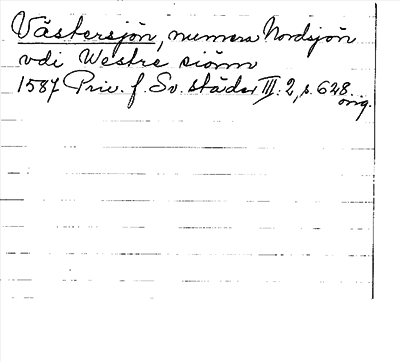 Västersjön, numera Nordsjön
vdi Westre siönn
1587 Priv. f. Sv. städer III: 2, s. 628.
orig.